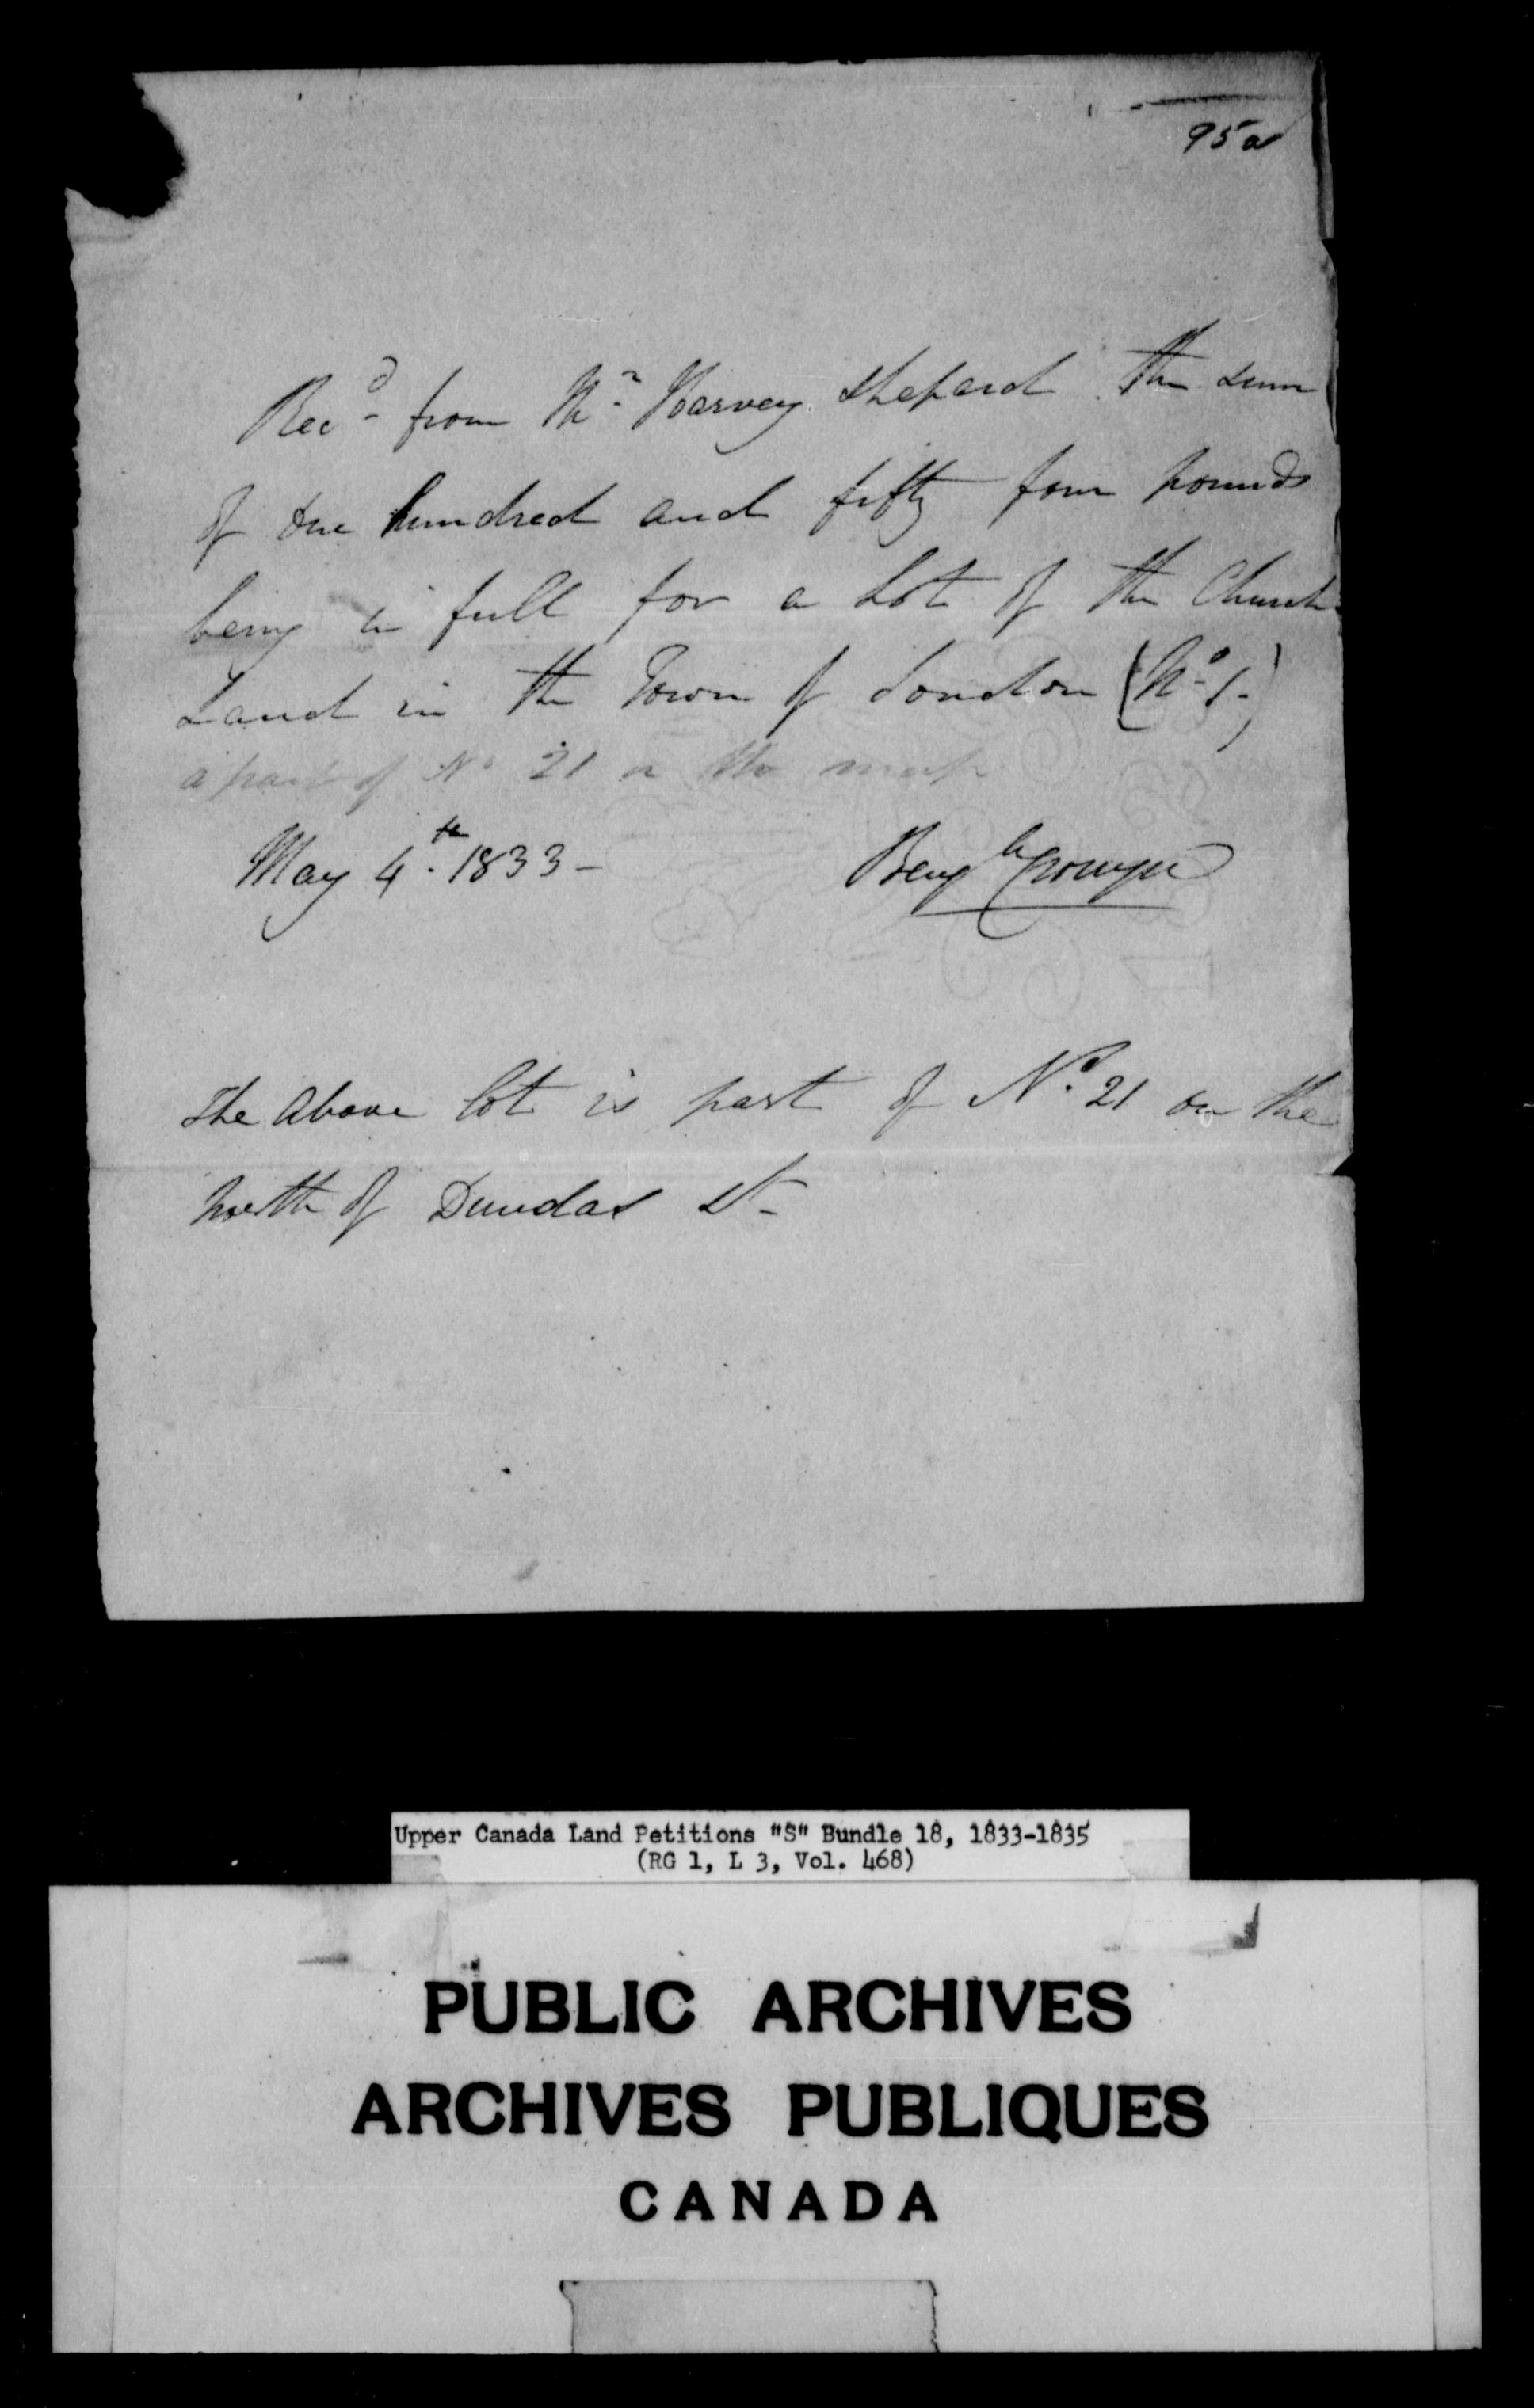 95a
Recd from Mr Harvey Shepard the sum
of one hundred and fifty four pounds
being in full for a Lot of the Church
Land in the Town of London (No 1.)
a part of No 21 on the map
May 4th 1833 - Benj Cronyn
The Above lot is part of No. 21 on the
north of Dundas St -
Upper Canada Land Petitions "S" Bundle 18, 1833-1835
(RG 1, L 3, Vol. 468)
PUBLIC ARCHIVES
ARCHIVES PUBLIQUES
CANADA